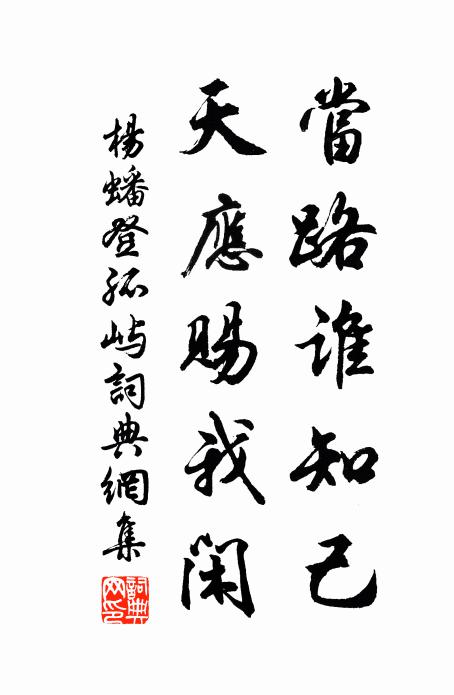 當路誰知己
天應賜我閑
楊蟠登孤嶼詞典網集
詞典網印